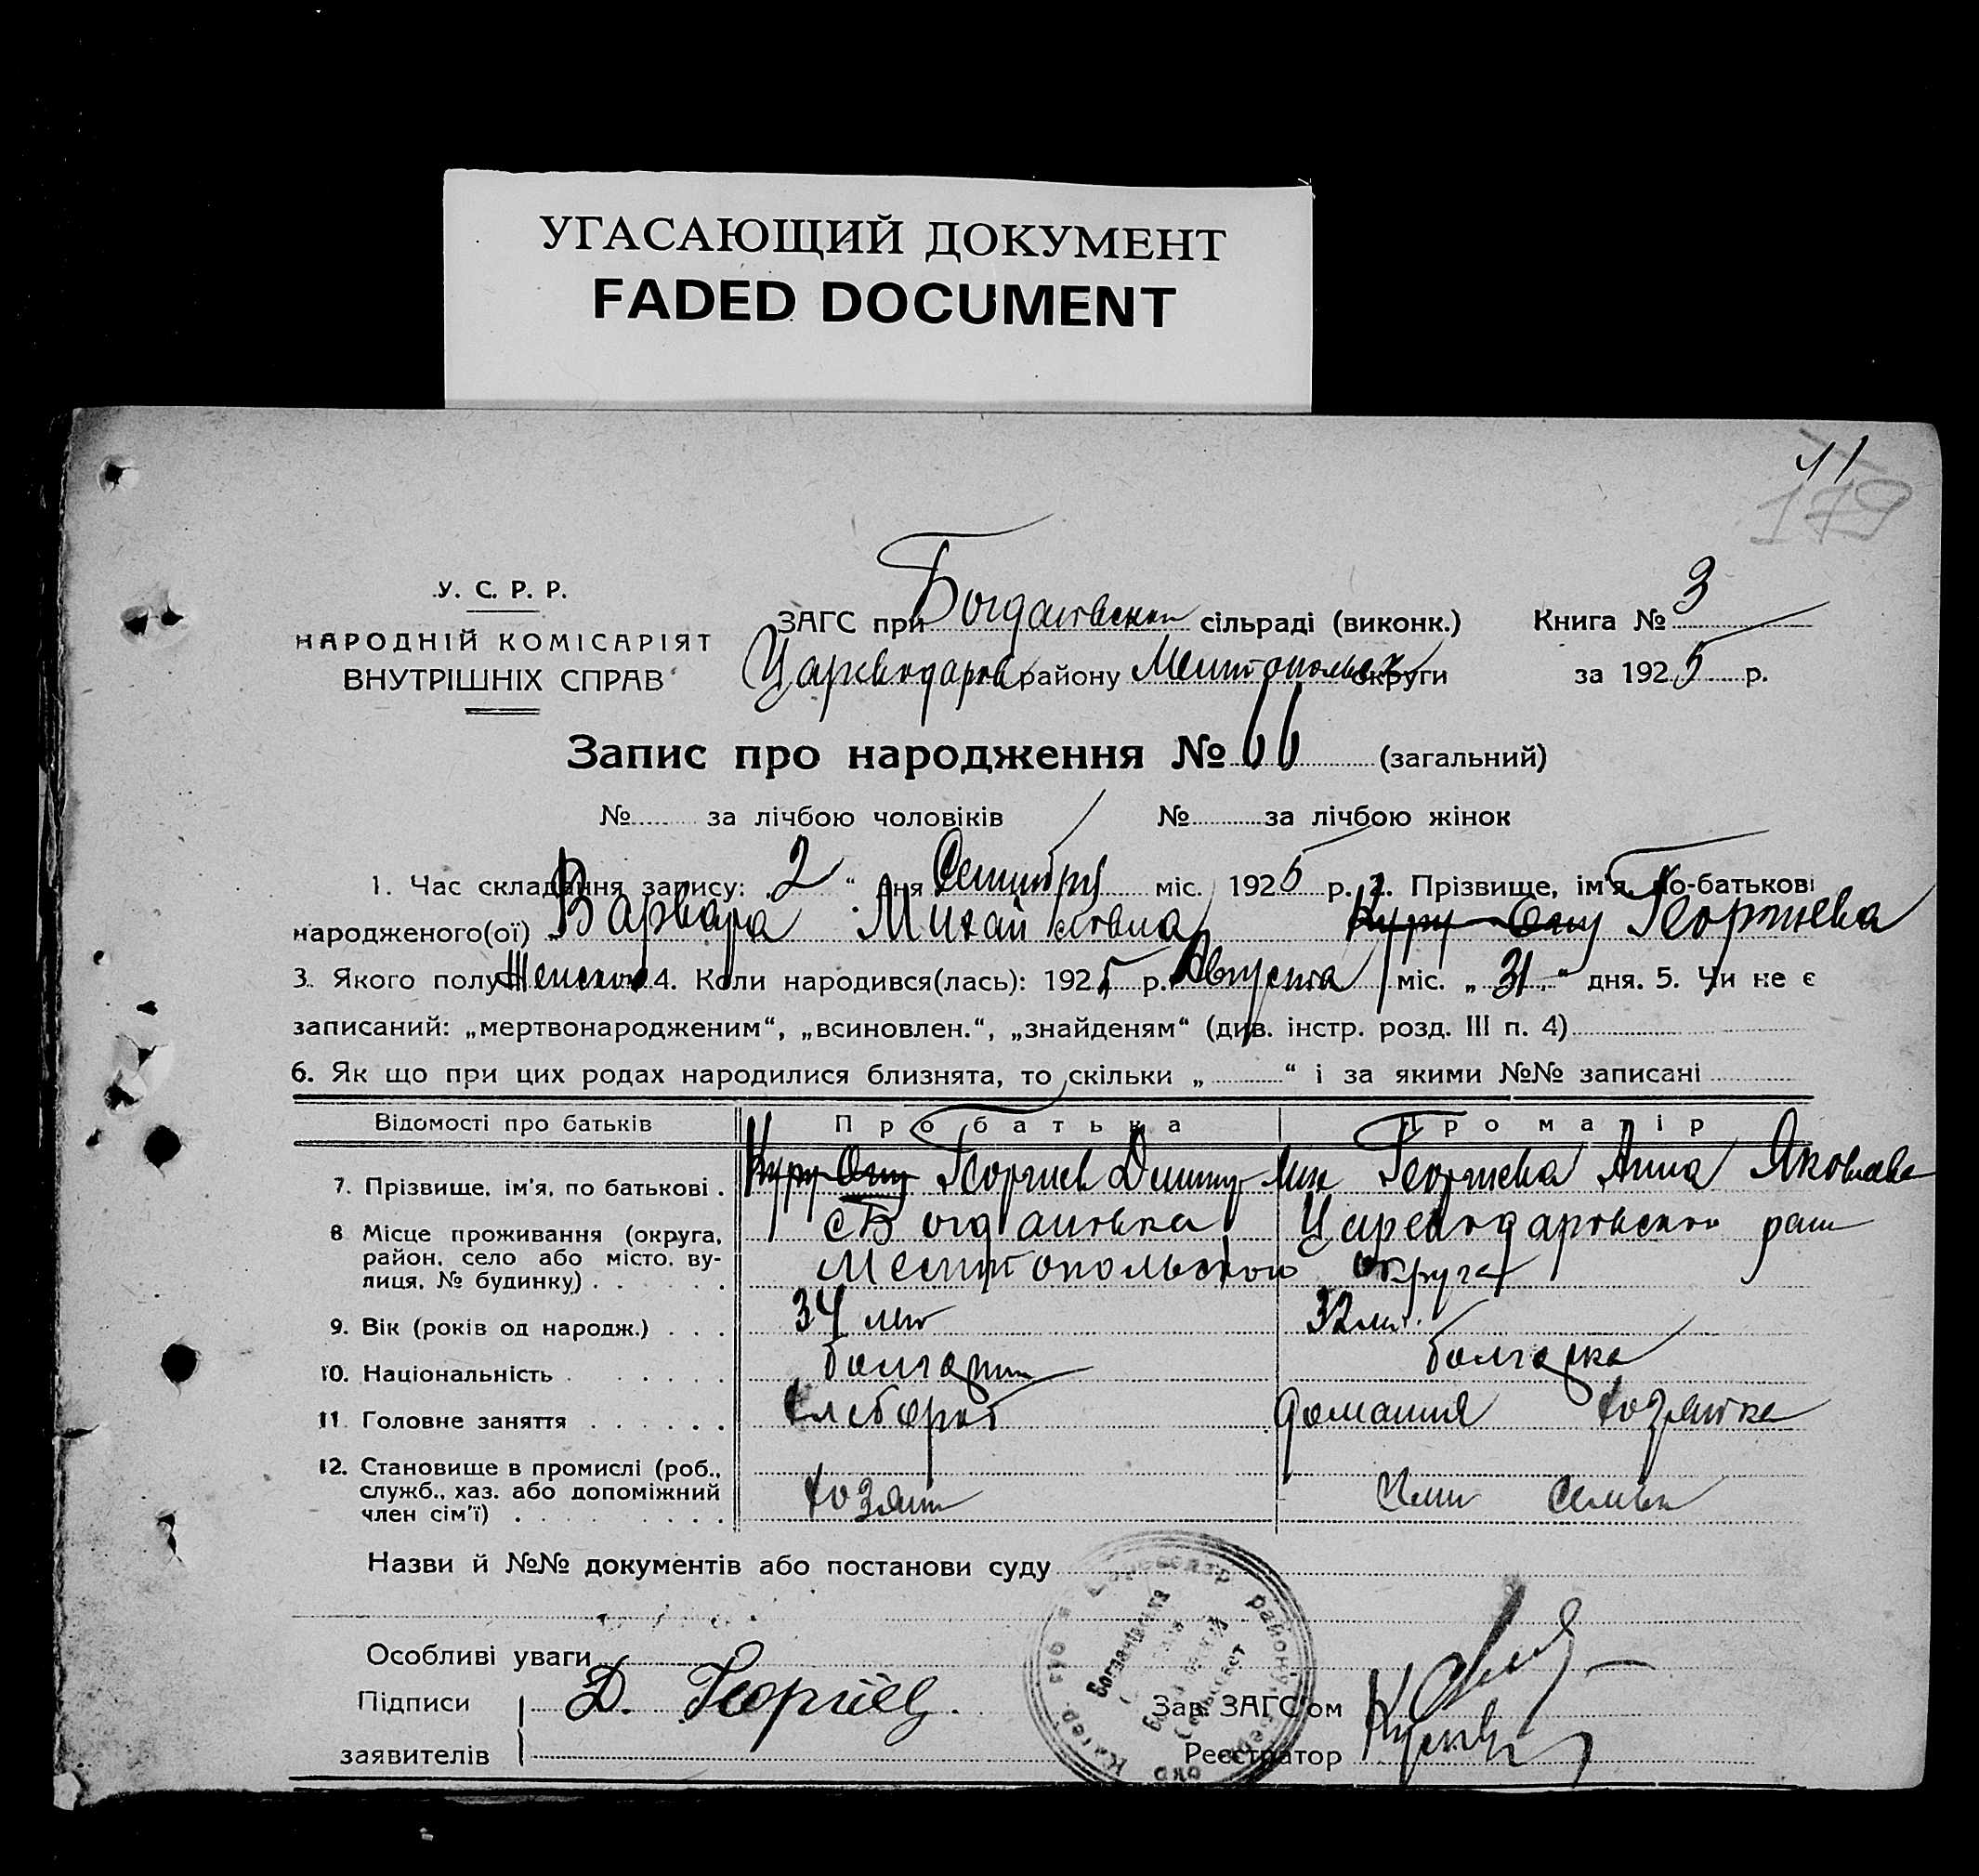 УГАСАЮЩИЙ ДОКУМЕНТ
FADED DOCUMENT
41
179
У. С. Р. Р.
НАРОДНІЙ КОМІСАРІЯТ
ВНУТРІШНІХ СПРАВ
ЗАГС при Богдановской сільраді (виконк.) Книга № 3
Цареводаров району Мелитопольск округи за 1925 р.
Запис про народження № 66 (загальний)
№ за лічбою чоловіків № за лічбою жінок
1. Час складання запису: 2 “ дня Сентября міс. 1925 р. 2. Прізвище, ім'я, по-батькові
народженого(ої) Варвара Михайловна Куру-Оглу Георгиева
3. Якого полу Женского 4. Коли народився(лась): 1925 р. Августа міс. „ 31 “ дня. 5. Чи не є
записаний: „мертвонародженим“, „всиновлен.“, „знайденям“ (див. інстр. розд. III п. 4)
6. Як що при цих родах народилися близнята, то скільки „ “ і за якими №№ записані
Відомості про батьків Про батька Про матір
7. Прізвище, ім'я, по батькові. Куру-Оглу Георгиев Дмитр Мих Георгиева Анна Яковлевна
8 Місце проживання (округа, с Богдановка Цареводаровской
район, село або місто, ву-
лиця, № будинку) Мелитопольской округа
9. Вік (років од народж.) 34 лет 32 лет.
10. Національність болгарин болгарка
11 Головне заняття хлебороб домашня хозяйка
12. Становище в промислі (роб.,
служб., хаз. або допоміжний хозяин член семьи
член сім'ї)
Назви й №№ документів або постанови суду
Особливі уваги
Підписи Д. Георгіев. Зав. ЗАГС'ом
заявителів Реєстратор